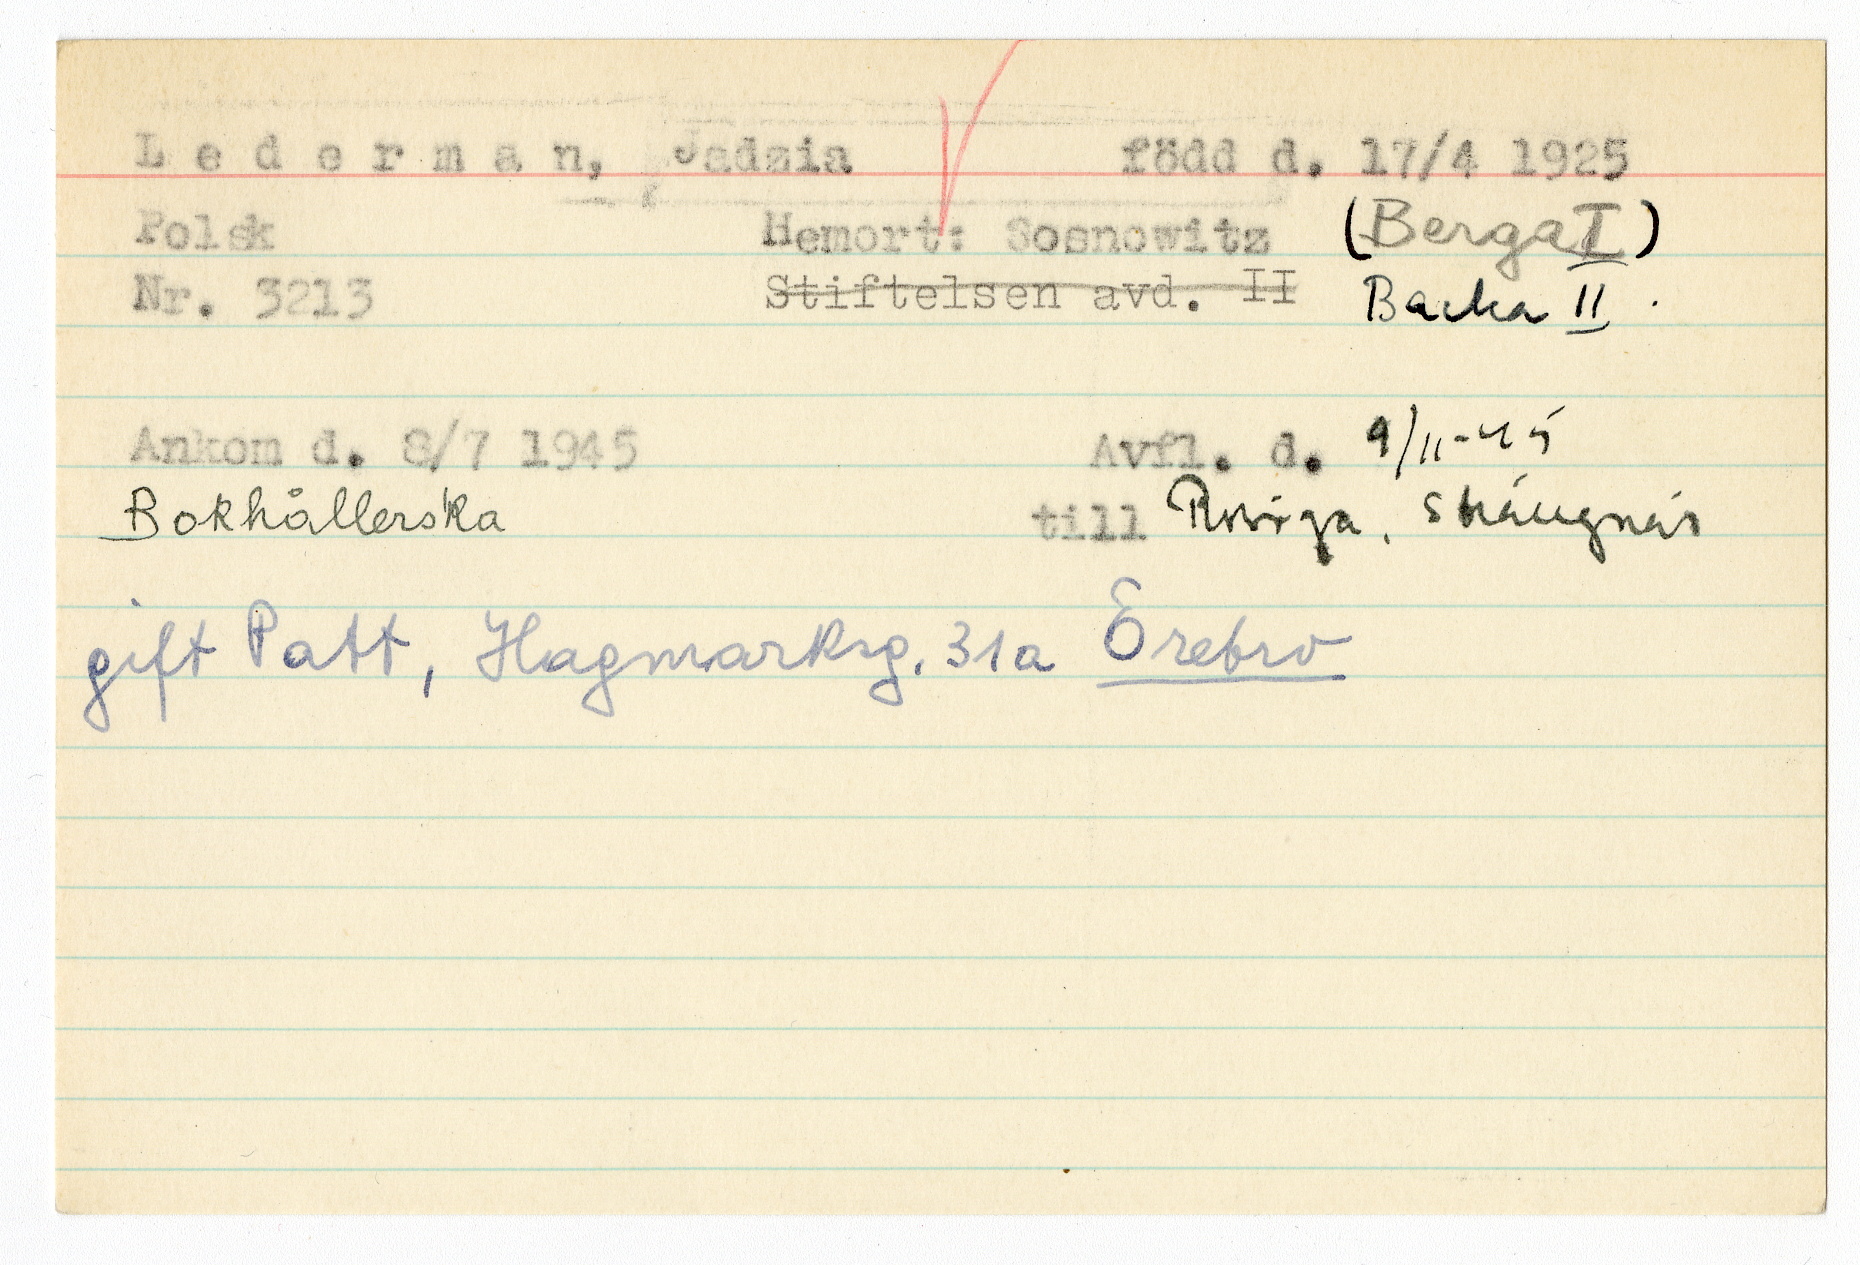 Lederman, Jadzia född d. 17/4 1925
Polsk Hemort: Sosnowitz (Berga I)
Nr. 3213 Stiftelsen avd. II Backa II.
Ankom d. 8/7 1945 Avfl. d. 9/11-45
Bokhållerska till Rosöga, Strängnäs
gift Patt, Hagmarksg. 31a Örebro